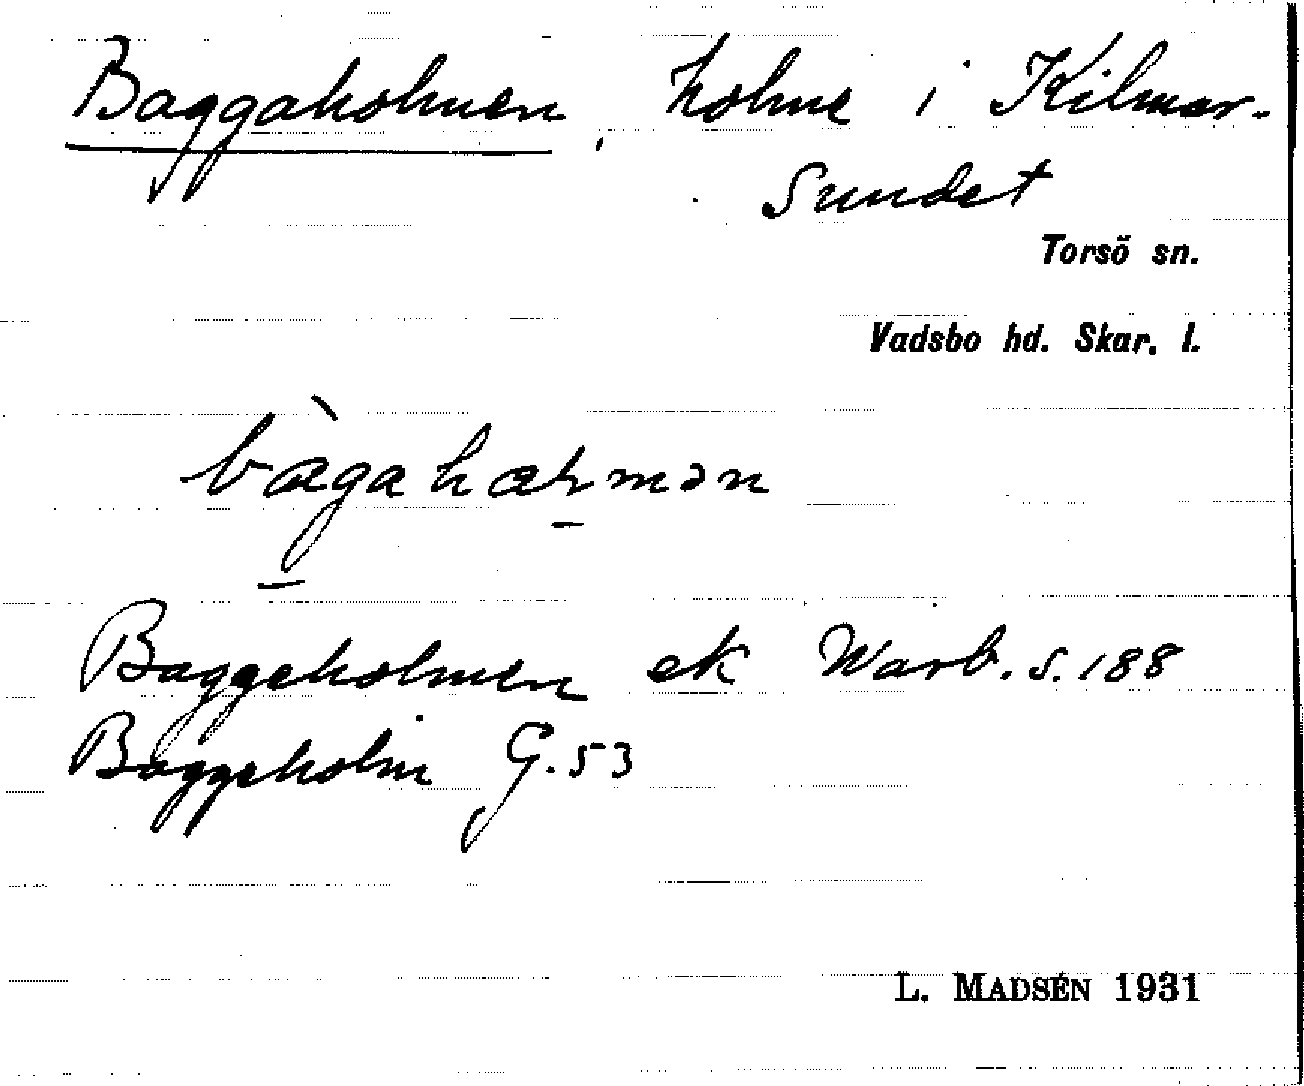 Baggaholmen, holme i Kilmar-
sundet
Torsö sn.
Vadsbo hd. Skar. l.
Baggeholmen ek Warb. s. 188
Baggeholm G. 53
L. MADSÉN 1931